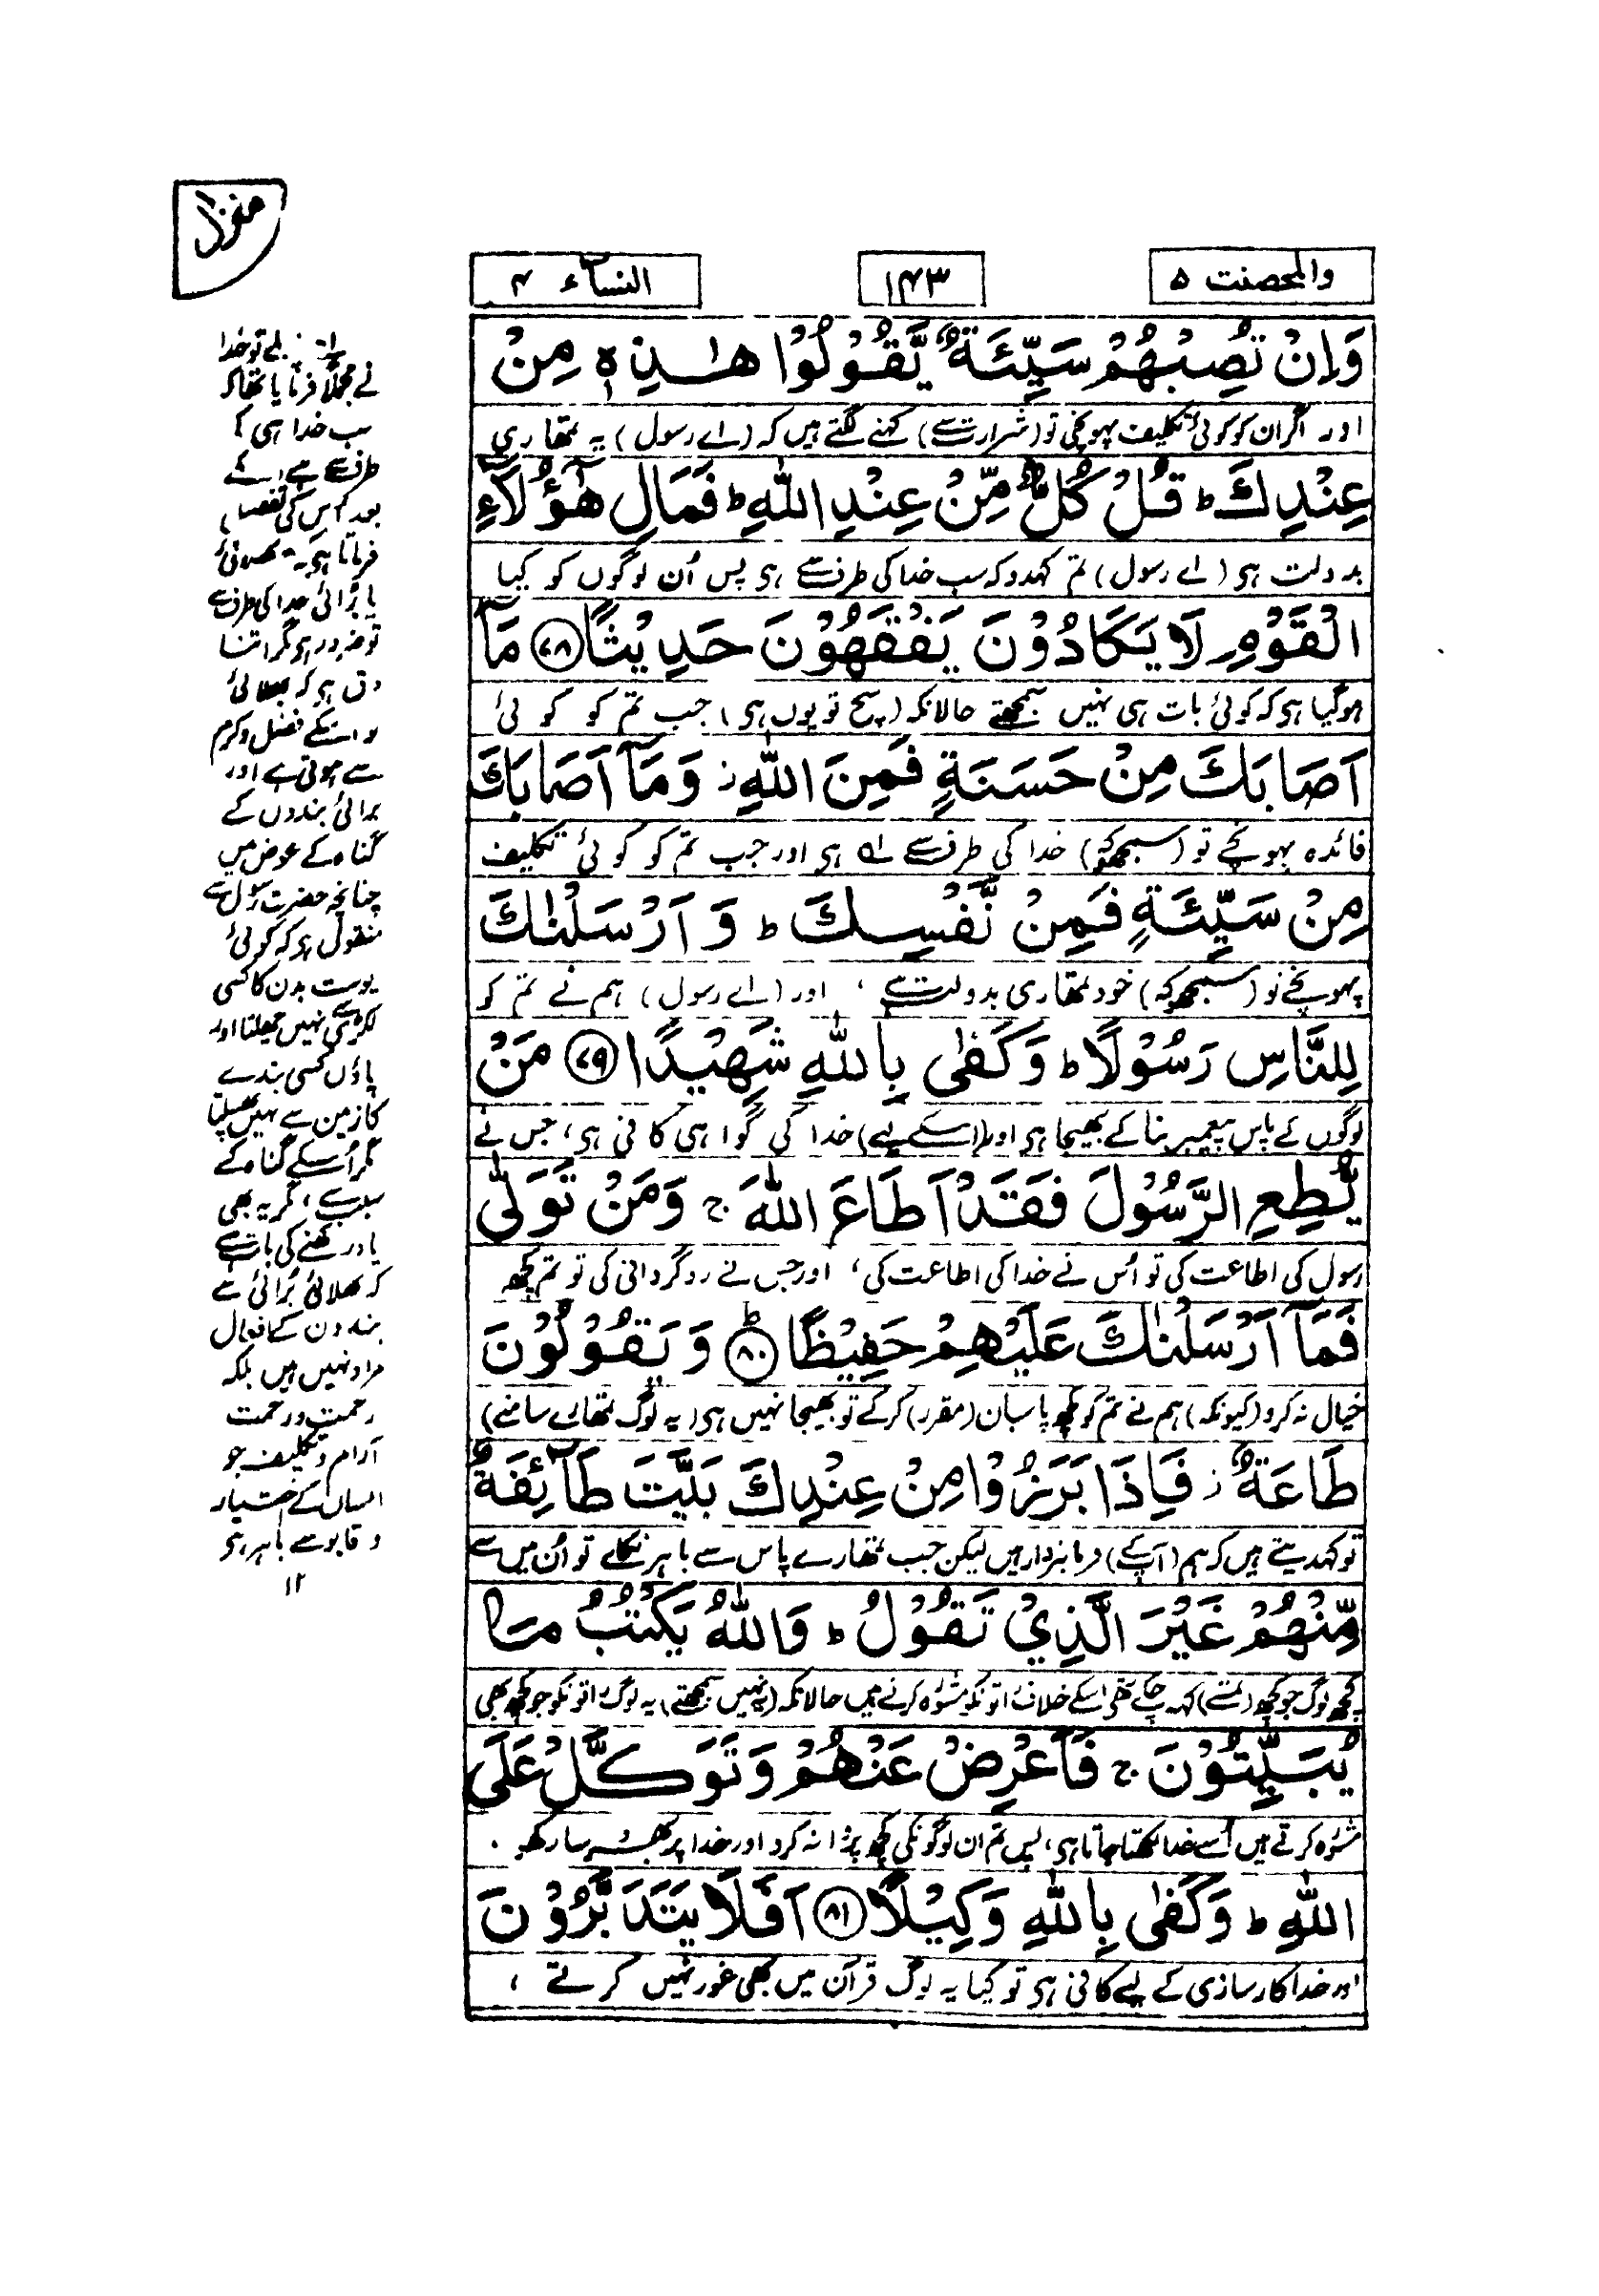 والمحصنت ۵
۱۴۳
النساۤء ۴
منزل
وَاِنْ تُصِبْهُمْ سَيِّئَةٌ يَّقُوْلُوْا هٰذِهٖ مِنْ
اور اگر ان کو کوئی تکلیف پہونچی تو (شرارت سے) کہنے لگتے ہیں کہ (اے رسول) یہ تمھاری
عِنْدِكَ ؕ قُلْ كُلٌّ مِّنْ عِنْدِ اللّٰهِ ؕ فَمَالِ هٰٓؤُلَآءِ
بدولت ہی (اے رسول) تم کہدو کہ سب خدا کی طرف سے ہی پس اُن لوگوں کو کیا
الْقَوْمِ لَا يَكَادُوْنَ يَفْقَهُوْنَ حَدِيْثًا ﴿۷۸﴾ مَآ
ہوگیا ہی کہ کوئی بات ہی نہیں سمجھتے حالانکہ (سچ تو یوں ہی) جب تم کو کوئی
اَصَابَكَ مِنْ حَسَنَةٍ فَمِنَ اللّٰهِ ۫ وَمَآ اَصَابَكَ
فائدہ پہونچے تو (سمجھو کہ) خدا کی طرف سے ہی اور جب تم کو کوئی تکلیف
مِنْ سَيِّئَةٍ فَمِنْ نَّفْسِكَ ؕ وَ اَرْسَلْنٰكَ
پہونچے تو (سمجھو کہ) خود تمھاری بدولت ہے ، اور (اے رسول) ہم نے تم کو
لِلنَّاسِ رَسُوْلًا ؕ وَكَفٰى بِاللّٰهِ شَهِيْدًا ﴿۷۹﴾ مَنْ
لوگوں کے پاس پیغمبر بنا کے بھیجا ہی اور (اسکے لیے) خدا کی گواہی کافی ہی، جس نے
يُّطِعِ الرَّسُوْلَ فَقَدْ اَطَاعَ اللّٰهَ ۚ وَمَنْ تَوَلّٰى
رسول کی اطاعت کی تو اُس نے خدا کی اطاعت کی ، اور جس نے روگردانی کی تو تم کچھ
فَمَآ اَرْسَلْنٰكَ عَلَيْهِمْ حَفِيْظًا ﴿۸۰﴾ؕ وَ يَقُوْلُوْنَ
خیال نہ کرو (کیونکہ) ہم نے تم کو کچھ پاسبان (مقرر) کرکے تو بھیجا نہیں ہی (یہ لوگ تمھارے سامنے)
طَاعَةٌ ۫ فَاِذَا بَرَزُوْا مِنْ عِنْدِكَ بَيَّتَ طَآئِفَةٌ
تو کہدیتے ہیں کہ ہم (آپکے) فرمانبردار ہیں لیکن جب تمھارے پاس سے باہر نکلے تو اُن میں سے
مِّنْهُمْ غَيْرَ الَّذِيْ تَقُوْلُ ؕ وَاللّٰهُ يَكْتُبُ مَا
کچھ لوگ جو کچھ (تمسے) کہہ چکے تھے اسکے خلاف راتونکو مشورہ کرتے ہیں حالانکہ (یہ نہیں سمجھتے) یہ لوگ راتونکو جو کچھ بھی
يُبَيِّتُوْنَ ۚ فَاَعْرِضْ عَنْهُمْ وَتَوَكَّلْ عَلَى
مشورہ کرتے ہیں اُسے خدا لکھتا جاتا ہی، پس تم ان لوگونکی کچھ پروا نہ کرو اور خدا پر بھروسا رکھو
اللّٰهِ ؕ وَكَفٰى بِاللّٰهِ وَكِيْلًا ﴿۸۱﴾ اَفَلَا يَتَدَبَّرُوْنَ
اور خدا کارسازی کے لیے کافی ہی تو کیا یہ لوگ قرآن میں بھی غور نہیں کرتے ،
پہلے تو خدا
نے مجملاً فرمایا تھا کہ
سب خدا ہی کی
طرف سے ہے اسکے
بعد اُس کی تفصیل
فرماتا ہی کہ بھلائی
یا بُرائی خدا کی طرف سے
تو ضرور ہی مگر اتنا
فرق ہی کہ بھلائی
تو اسکے فضل و کرم
سے ہوتی ہے اور
برائی بندوں کے
گناہ کے عوض میں
چنانچہ حضرت رسول سے
منقول ہی کہ کوئی
پوست بدن کا کسی
لکڑی سے نہیں چھلتا اور
پاؤں کسی بندے
کا زمین سے نہیں پھسلتا
مگر اُسکے گناہ کے
سبب سے، مگر یہ بھی
یاد رکھنے کی بات ہے
کہ بھلائی بُرائی سے
بندون کے افعال
مراد نہیں ہیں بلکہ
آرام و تکلیف جو
انسان کے اختیار
و قابو سے باہر ہی
۱۲